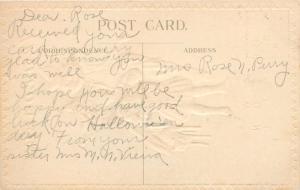 Dear. Rose
POST CARD.
Received your
card
CORRESPONDENCE
ADDRESS
glad to know you
was well
Miss Rose N. Perry
I hope you will be
happy and have good
luck on Hallowe'en
day From your
sister Mrs M. N.